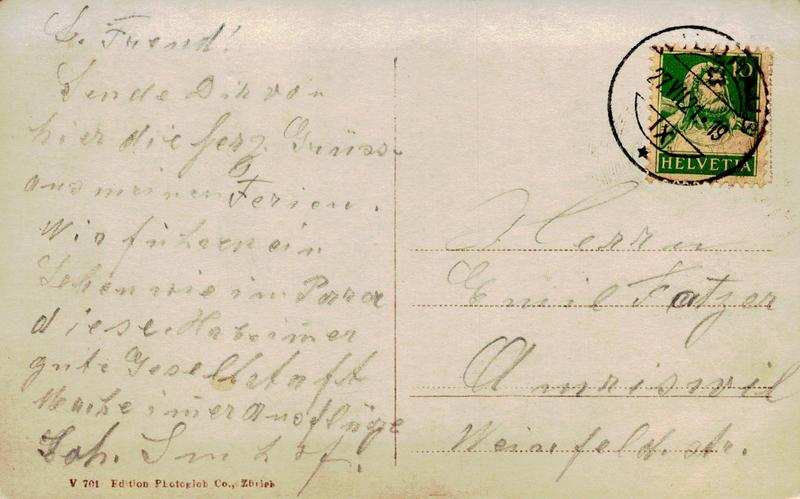 L. Freund!
Sende Dir von
hier die herz. Grüss.
aus meinen Ferien.
Wir führen ein
Leben wie im Para
diese. Habe imer
gute Gesellstaft
Mache imer Ausflüge
Joh. Imhof.
V 701 Edition Photoglob Co., Zürich
10
HELVETIA
IX
Herrn
Emil Fatzer
Amriswil
Weinfeld. str.